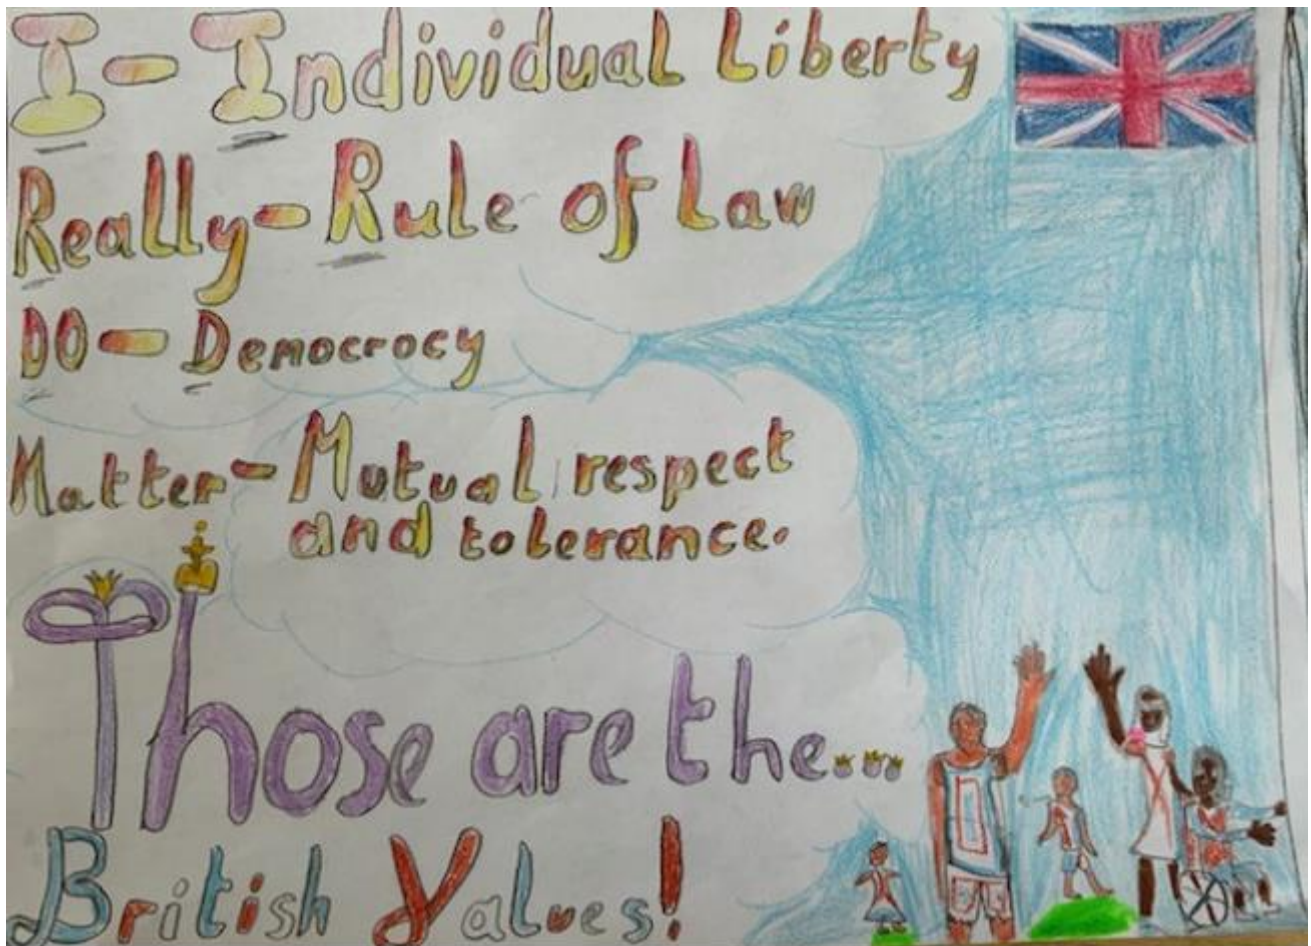 I - Individual Liberty
Really - Rule of Law
DO - Democrocy
Matter - Mutual respect
and tolerance.
Those are the...
British Values!